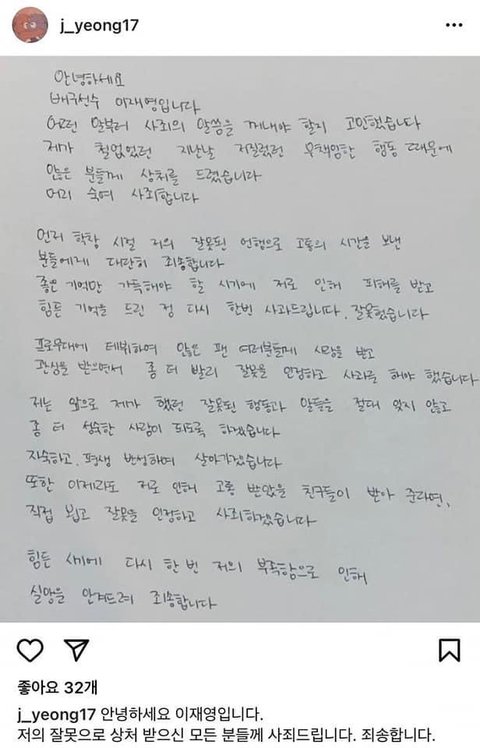 j_yeong17
안녕하세요
배구선수 이재영입니다
어떤 말부터 사죄의 말씀을 꺼내야 할지 고민했습니다
제가 철없었던 지난날 저질렀던 무책임한 행동 때문에
많은 분들께 상처를 드렸습니다
머리 숙여 사죄합니다
먼저 학창 시절 저의 잘못된 언행으로 고통의 시간을 보낸
분들에게 대단히 죄송합니다
좋은 기억만 가득해야 할 시기에 저로 인해 피해를 받고
힘든 기억을 드린 점 다시 한번 사과드립니다. 잘못했습니다
프로무대에 데뷔하여 많은 팬 여러분들께 사랑을 받고
관심을 받으면서 좀 더 빨리 잘못을 인정하고 사과를 해야 했습니다
저는 앞으로 제가 했던 잘못된 행동과 말들을 절대 잊지 않고
좀 더 성숙한 사람이 되도록 하겠습니다
자숙하고 평생 반성하며 살아가겠습니다
또한 이제라도 저로 인해 고통 받았을 친구들이 받아 준다면,
직접 뵙고 잘못을 인정하고 사죄하겠습니다
힘든 시기에 다시 한 번 저의 부족함으로 인해
실망을 안겨드려 죄송합니다
좋아요 32개
j_yeong17 안녕하세요 이재영입니다.
저의 잘못으로 상처 받으신 모든 분들께 사죄드립니다. 죄송합니다.